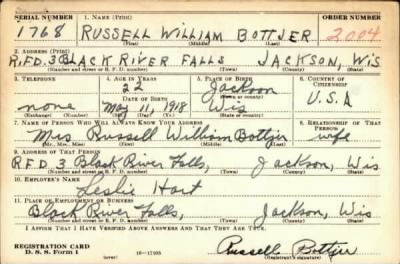 SERIAL NUMBER 1. NAME (Print) ORDER NUMBER
1768 RUSSELL WILLIAM BOTTJER 2004
(First) (Middle) (Last)
2. ADDRESS (Print)
R.F.D. 3 BLACK RIVER FALLS, JACKSON, WIS
(Number and street or R. F. D. number) (Town) (County) (State)
3. TELEPHONE 4. AGE IN YEARS 5. PLACE OF BIRTH 6. COUNTRY OF CITIZENSHIP
22 Jackson
DATE OF BIRTH (Town or county)
none May 11, 1918 Wis U.S.A
(Exchange) (Number) (Mo.) (Day) (Yr.) (State or country)
7. NAME OF PERSON WHO WILL ALWAYS KNOW YOUR ADDRESS 8. RELATIONSHIP OF THAT PERSON
Mrs Russell William Bottjer wife
(Mr., Mrs., Miss) (First) (Middle) (Last)
9. ADDRESS OF THAT PERSON
R.F.D. 3 Black River Falls, Jackson, Wis
(Number and street or R. F. D. number) (Town) (County) (State)
10. EMPLOYER'S NAME
Leslie Hart
11. PLACE OF EMPLOYMENT OR BUSINESS
Black River Falls, Jackson, Wis
(Number and street or R. F. D. number) (Town) (County) (State)
I AFFIRM THAT I HAVE VERIFIED ABOVE ANSWERS AND THAT THEY ARE TRUE.
REGISTRATION CARD
D. S. S. FORM 1 16—17105 Russell Bottjer
(Registrant's signature)